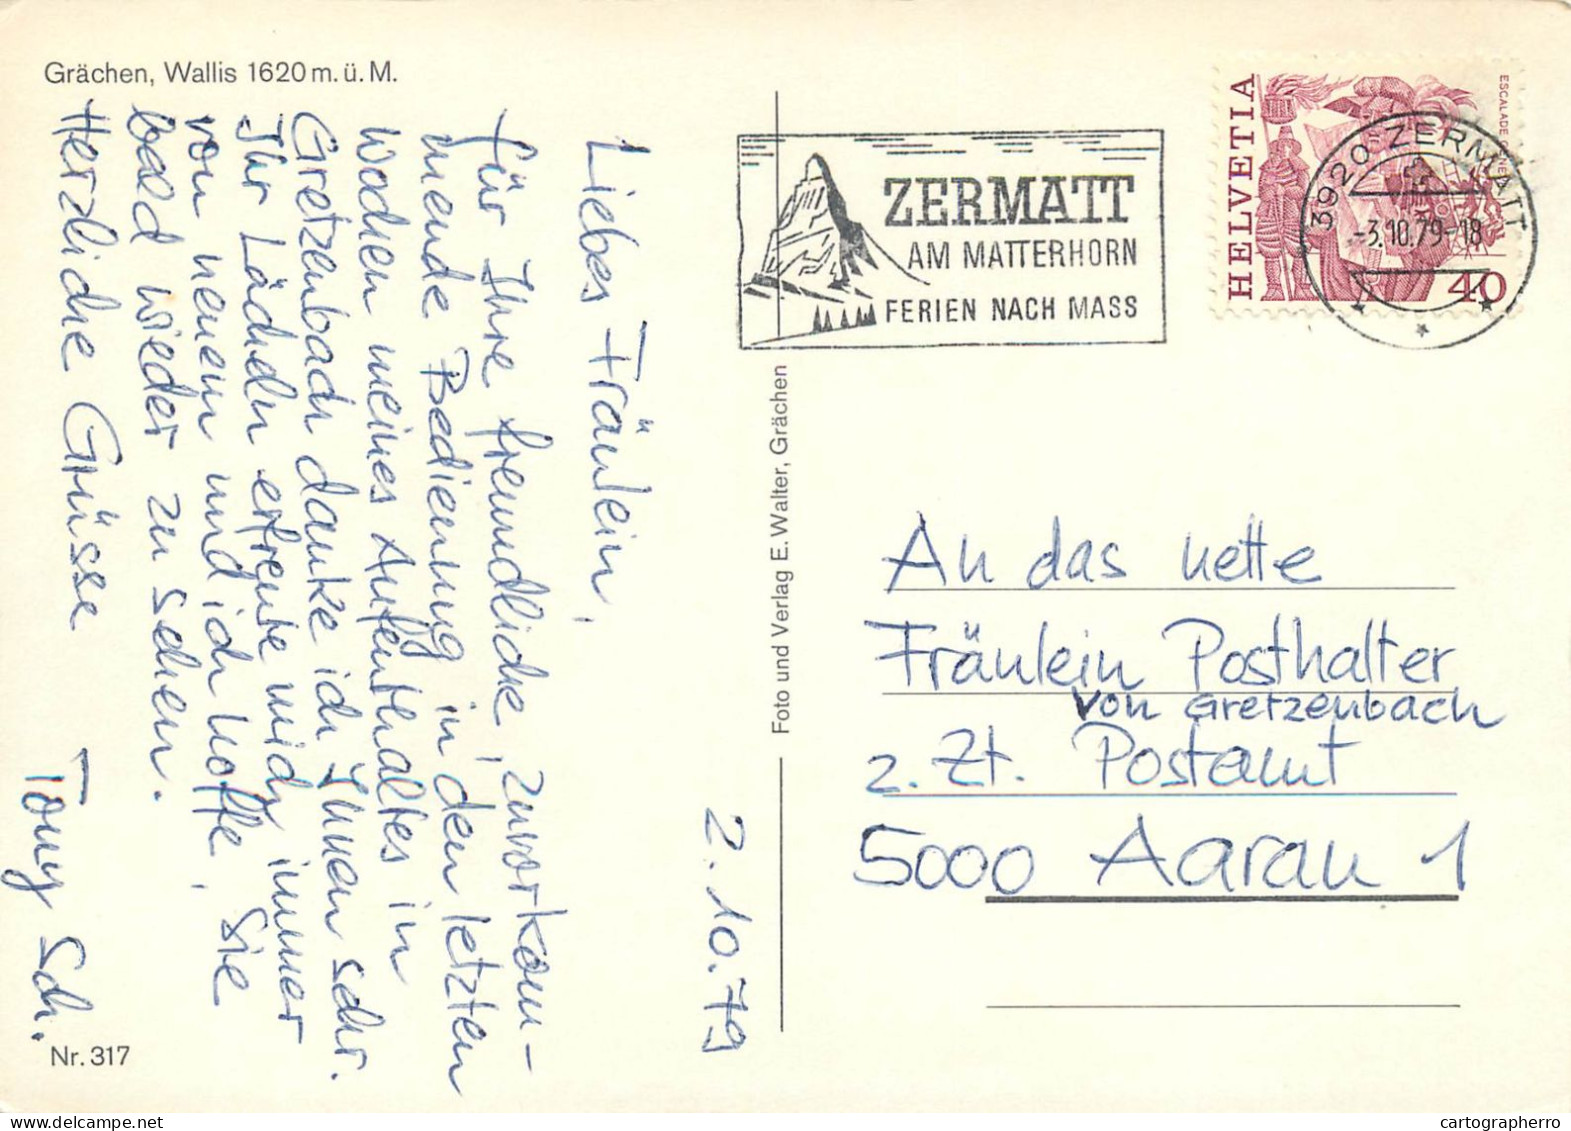 Grächen, Wallis 1620 m. ü. M.
2.10.79
Liebes Fräulein,
für Ihre freundliche, zuvorkom-
mende Bedienung in den letzten
Wochen meines Aufenthaltes in
Gretzenbach danke ich Ihnen sehr.
Ihr Lächeln erfreute mich immer
von neuem und ich hoffe, Sie
bald wieder zu sehen.
Herzliche Grüsse
Tony Sch.
Nr. 317
Foto und Verlag E. Walter, Grächen
ZERMATT
AM MATTERHORN
FERIEN NACH MASS
HELVETIA
ESCALADE
40
3920 ZERMATT
-3.10.79-18
An das nette
Fräulein Posthalter
von Gretzenbach
z. Zt. Postamt
5000 Aarau 1
cartographerro